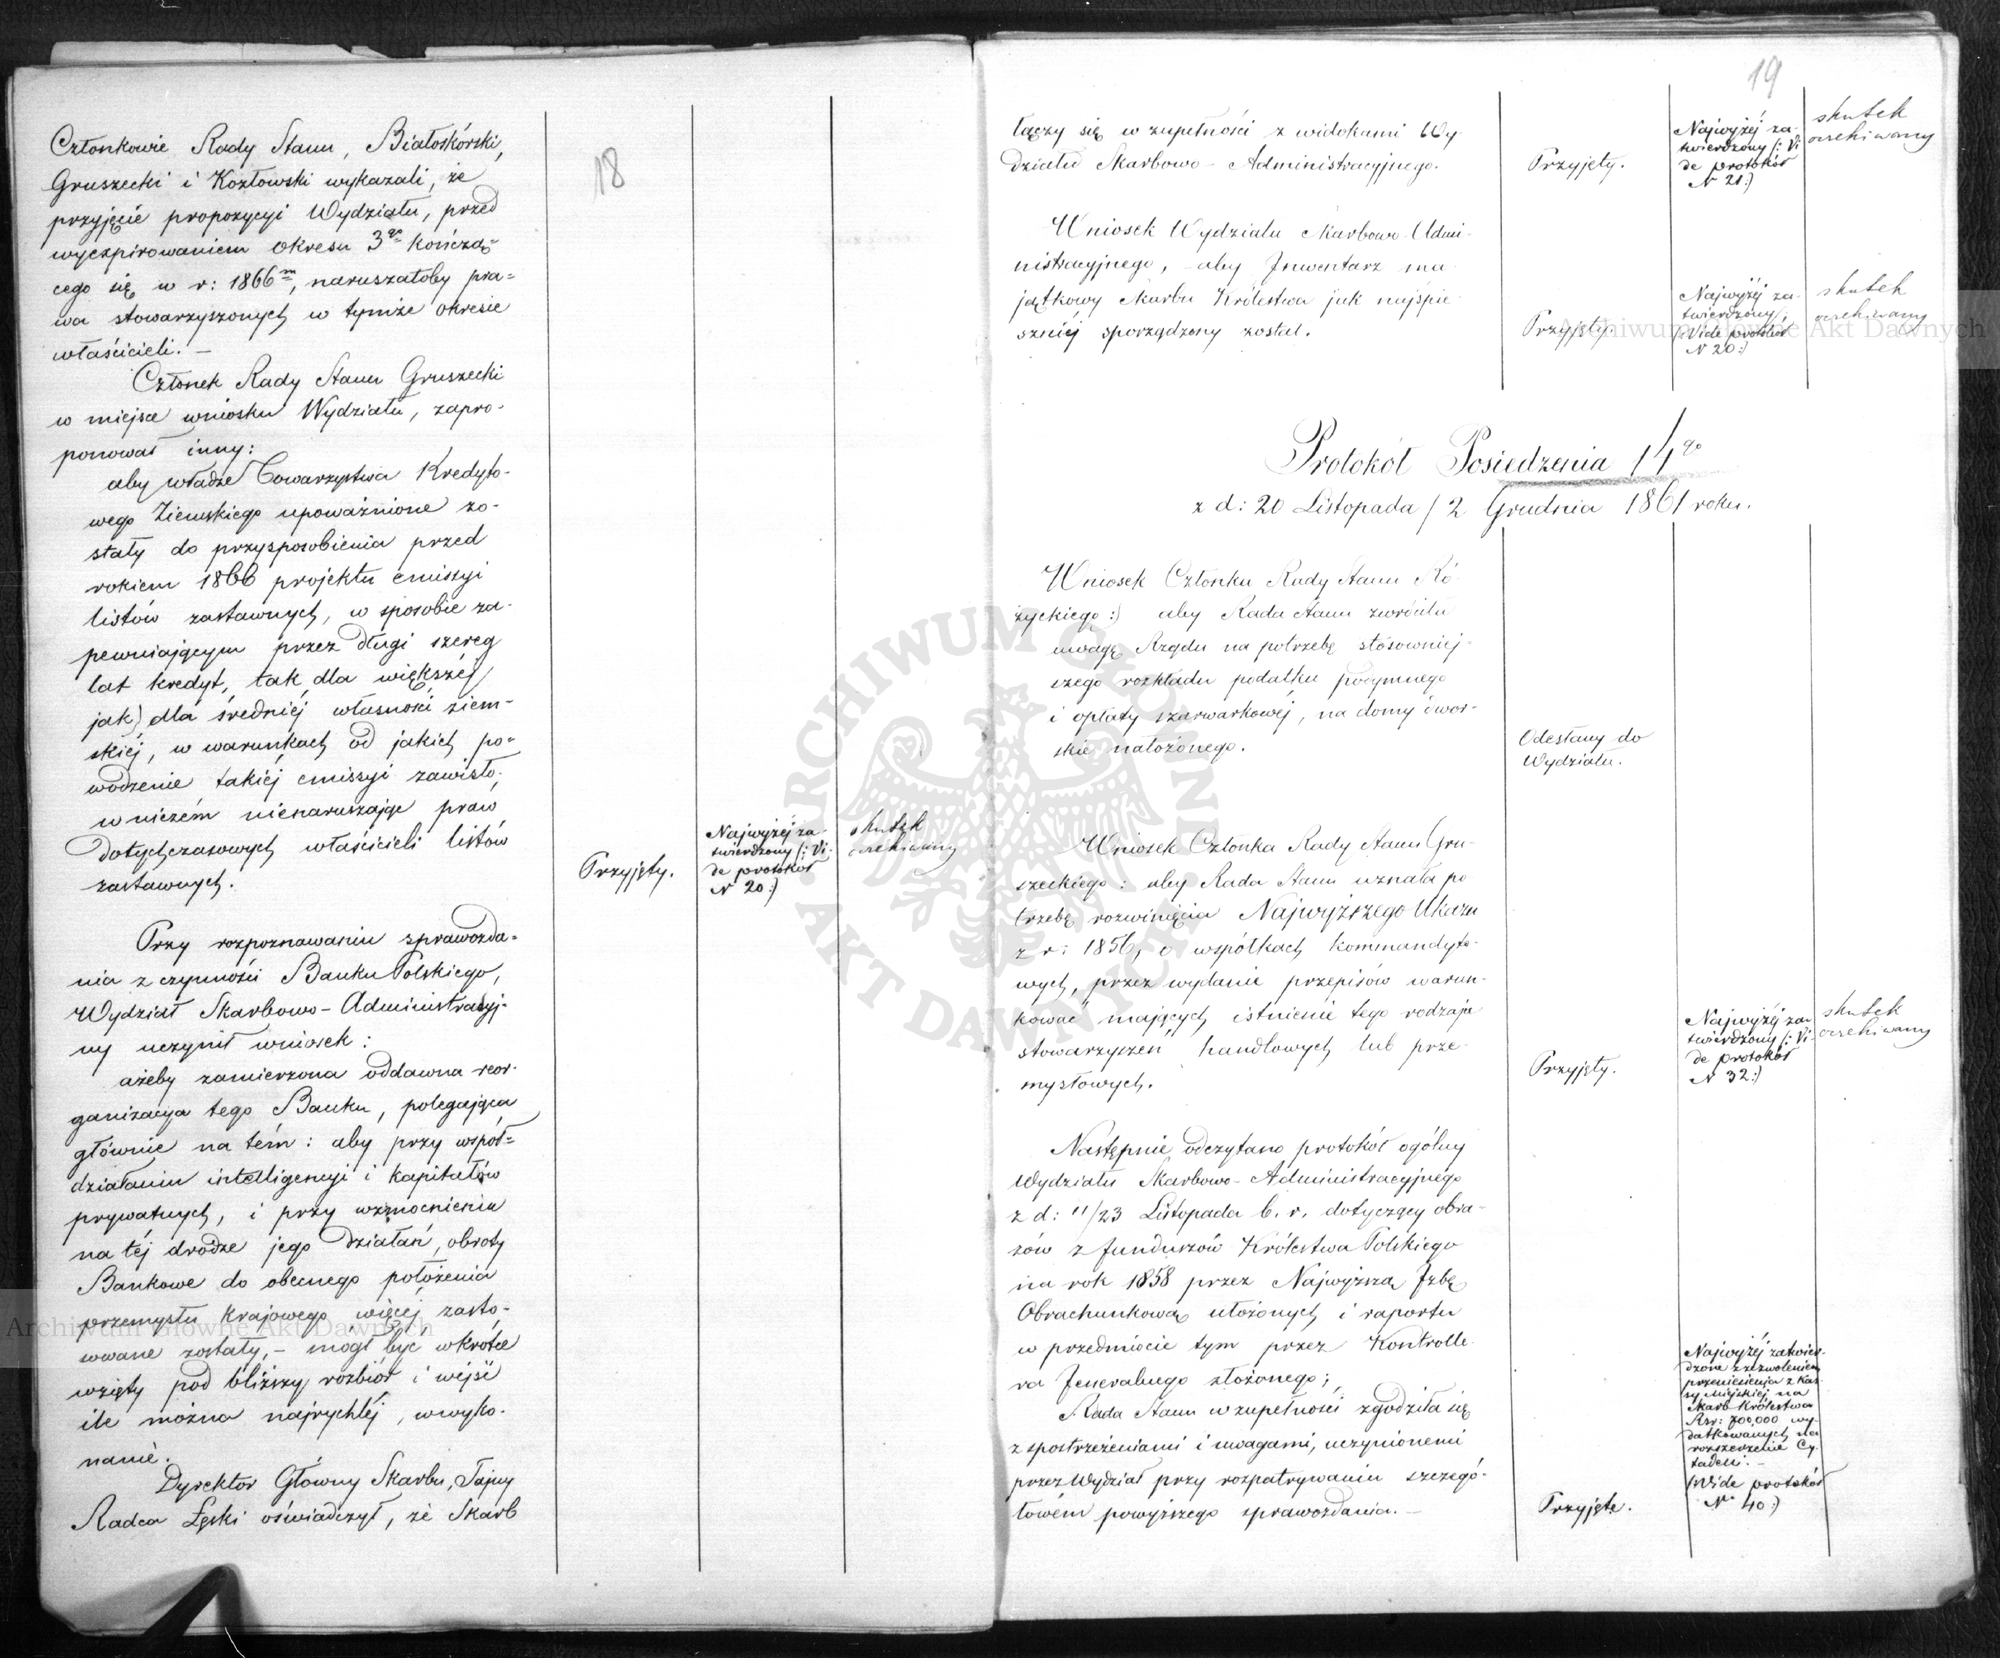 18
Członkowie Rady Stanu, Białoskórski,
Gruszecki i Kozłowski wykazali, że
przyjęcie propozycyi Wydziału, przed
wyexpirowaniem okresu 3go kończą=
cego się w r: 1866m, naruszałoby pra=
wa stowarzyszonych w tymże okresie
właścicieli. —
Członek Rady Stanu Gruszecki
w miejsce wniosku Wydziału, zapro-
ponował inny:
aby władze Towarzystwa Kredyto-
wego Ziemskiego upoważnione zo-
stały do przysposobienia przed
rokiem 1866 projektu emissyi
listów zastawnych, w sposobie za-
pewniającym przez długi szereg
lat kredyt, tak dla większéj
jak dla średniéj własności ziem-
skiéj, w warunkach od jakich po=
wodzenie takiéj emissyi zawisło,
w niczém nienaruszając praw
dotychczasowych właścicieli listów
zastawnych.
Przyjęty.
Najwyżéj za-
twierdzony (: Vi-
de protokół
N 20:)
skutek
Przy rozpoznawaniu sprawozda=
nia z czynności Banku Polskiego,
Wydział Skarbowo-Administracyj-
ny uczynił wniosek:
ażeby zamierzona oddawna reor-
ganizacya tego Banku, polegająca
głównie na tém: aby przy współ=
działaniu intelligencyi i kapitałów
prywatnych, i przy wzmocnieniu
na téj drodze jego działań, obroty
Bankowe do obecnego położenia
przemysłu krajowego więcéj zasto-
sowane zostały, — mógł być wkrótce
wzięty pod bliższy rozbiór i wejść
ile można najrychléj, w wyko-
nanie.
Dyrektor Główny Skarbu, Tajny
Radca Łęski oświadczył, że Skarb
19
łączy się w zupełności z widokami Wy-
działu Skarbowo-Administracyjnego.
Przyjęty.
Najwyżéj za-
twierdzony (: Vi
de protokół
N 21:)
skutek
Wniosek Wydziału Skarbowo-Admi-
nistracyjnego, — aby Inwentarz ma-
jątkowy Skarbu Królestwa jak najśpie-
szniéj sporządzony został.
Przyjęty.
Najwyżéj za-
twierdzony,
(Vide protokół
N 20:)
skutek
Protokół Posiedzenia 14go
z d: 20 Listopada / 2 Grudnia 1861 roku.
Wniosek Członka Rady Stanu Ró-
życkiego:) aby Rada Stanu zwróciła
uwagę Rządu na potrzebę stosowniej-
szego rozkładu podatku podymnego
i opłaty szarwarkowéj, na domy dwor-
skie nałożonego.
Odesłany do
Wydziału.
Wniosek Członka Rady Stanu Gru-
szeckiego: aby Rada Stanu uznała po
trzebę rozwinięcia Najwyższego Ukazu
z r: 1856, o współkach kommandyto-
wych, przez wydanie przepisów warun-
kować mających istnienie tego rodzaju
stowarzyszeń handlowych lub prze-
mysłowych.
Przyjęty.
Najwyżéj za-
twierdzony (: Vi-
de protokół
N 32:)
skutek
Następnie odczytano protokół ogólny
Wydziału Skarbowo-Administracyjnego
z d: 11/23 Listopada b. r. dotyczący obra-
zów z funduszów Królestwa Polskiego
na rok 1858 przez Najwyższą Izbę
Obrachunkową ułożonych i raportu
w przedmiocie tym przez Kontrolle-
ra Jeneralnego złożonego;
Rada Stanu w zupełności zgodziła się
z spostrzeżeniami i uwagami, uczynionemi
przez Wydział przy rozpatrywaniu szczegó-
łowém powyższego sprawozdania. —
Przyjęte.
Najwyżéj zatwier-
dzone z zezwoleniem
przeniesienia z Kas-
sy Miejskiéj na
Skarb Królestwa
Rsr: 700,000 wy-
datkowanych na
rozszerzenie Cy-
tadelli. —
(Vide protokół
N 40:)
ARCHIWUM GŁÓWNE
AKT DAWNYCH
Archiwum Główne Akt Dawnych
Archiwum Główne Akt Dawnych